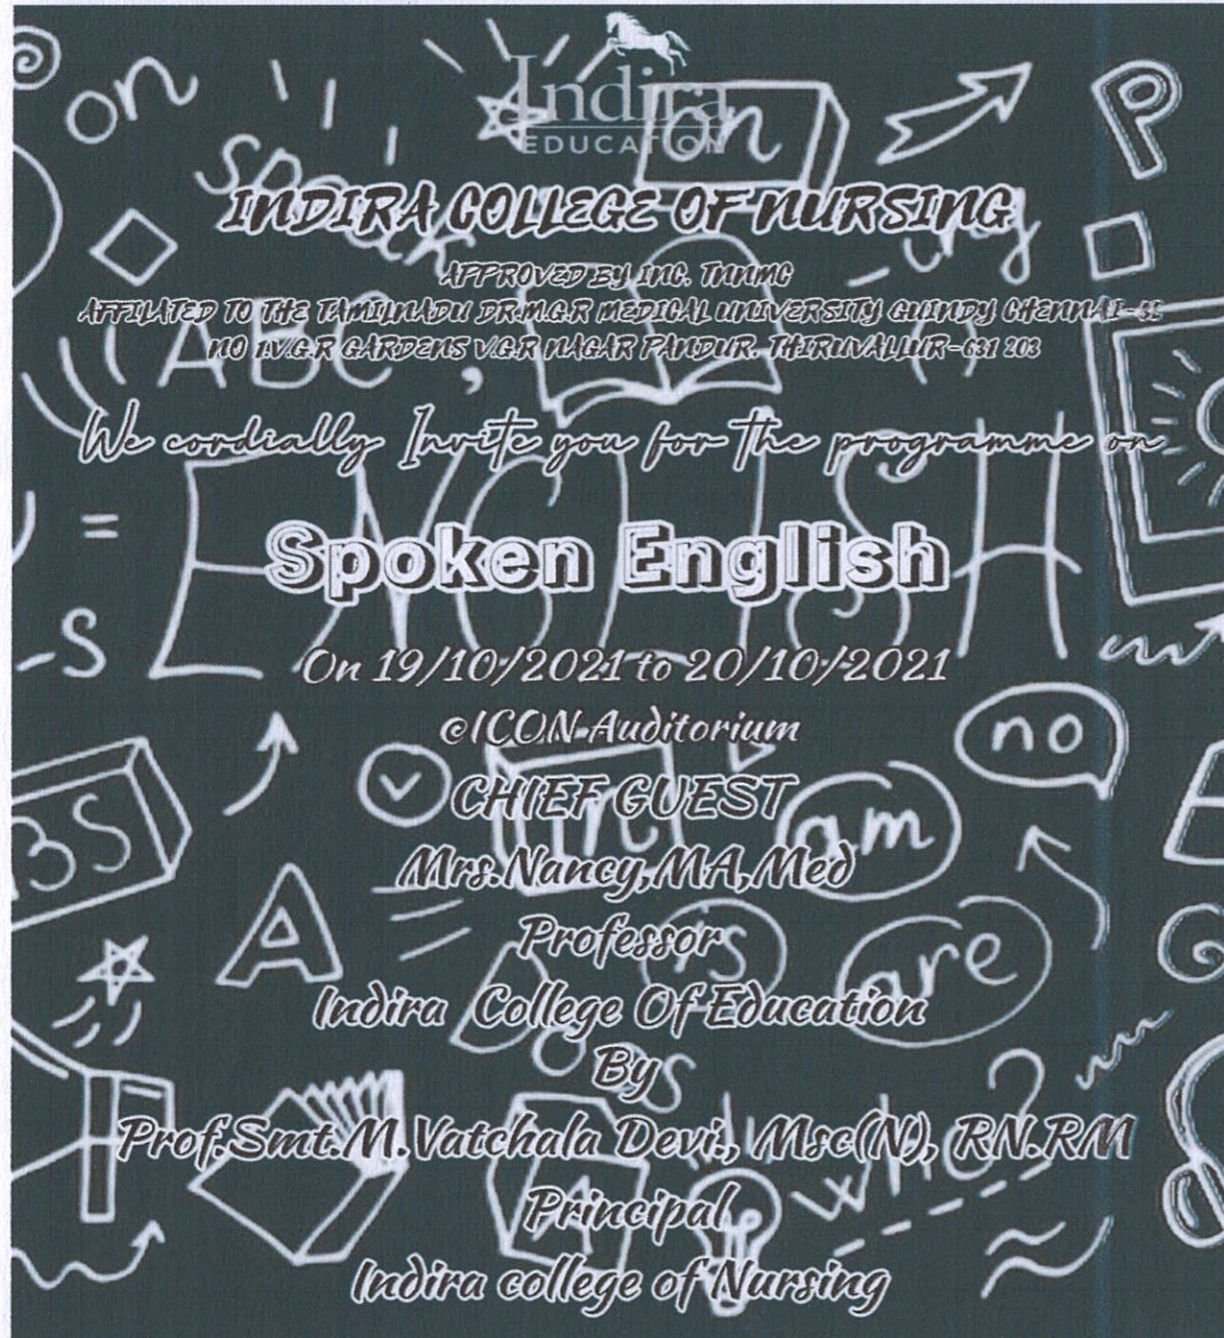 Indira
EDUCATION
INDIRA COLLEGE OF NURSING
APPROVED BY INC. TNNMC
AFFILATED TO THE TAMILNADU DR.M.G.R MEDICAL UNIVERSITY GUINDY CHENNAI-32
NO 1.V.G.R GARDENS V.G.R NAGAR PANDUR. THIRUVALLUR-631 203
We cordially Invite you for the programme on
Spoken English
On 19/10/2021 to 20/10/2021
@ICON Auditorium
CHIEF GUEST
Mrs.Nancy,MA,Med
Professor
Indira College Of Education
By
Prof.Smt.M.Vatchala Devi., Msc(N), RN.RM
Principal
Indira college of Nursing
on
on
P
Speak
ing
ABC,
ENGLISH
=
-S
no
3S
am
A
is
are
who